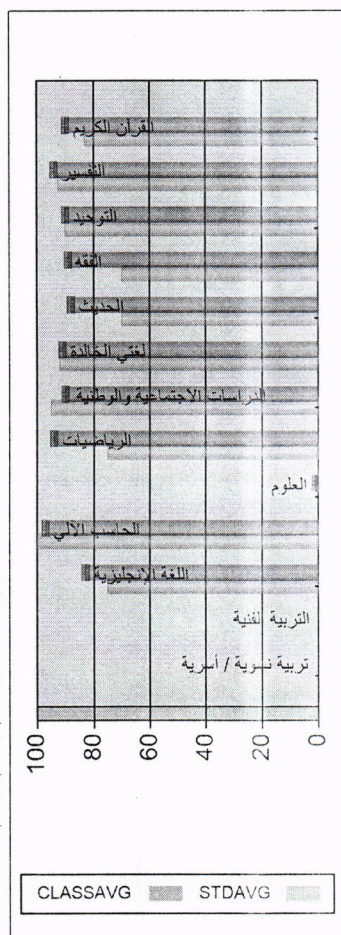 القرآن الكريم
التفسير
التوحيد
الفقه
الحديث
لغتي الخالدة
الدراسات الاجتماعية والوطنية
الرياضيات
العلوم
الحاسب الآلي
اللغة الانجليزية
التربية الفنية
تربية نسوية / أسرية
100 80 60 40 20 0
CLASSAVG STDAVG